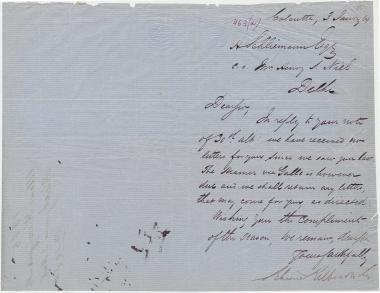 463(a)
Calcutta, 3 Jany
H Schliemann Esqr
c.o. Mr Henry S. Neil
Delhi
Dear Sir,
In reply to your note
of 30th ult we have received no
letters for you since we saw you last
The Steamer via Galle is however
due and we shall return any letters,
that may come for you as directed
Wishing you the compliments
of the season, we remain, dear sir
yours faithfully